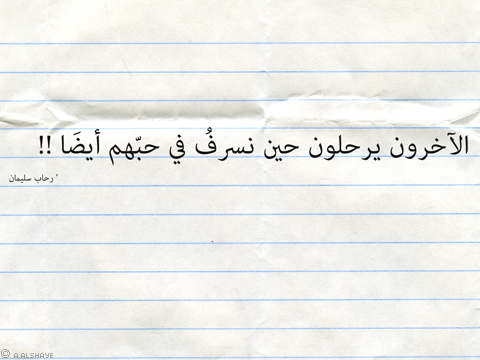 الآخرون يرحلون حين نسرفُ في حبّهم أيضَا !!
' رحاب سليمان
© A.ALSHAYE